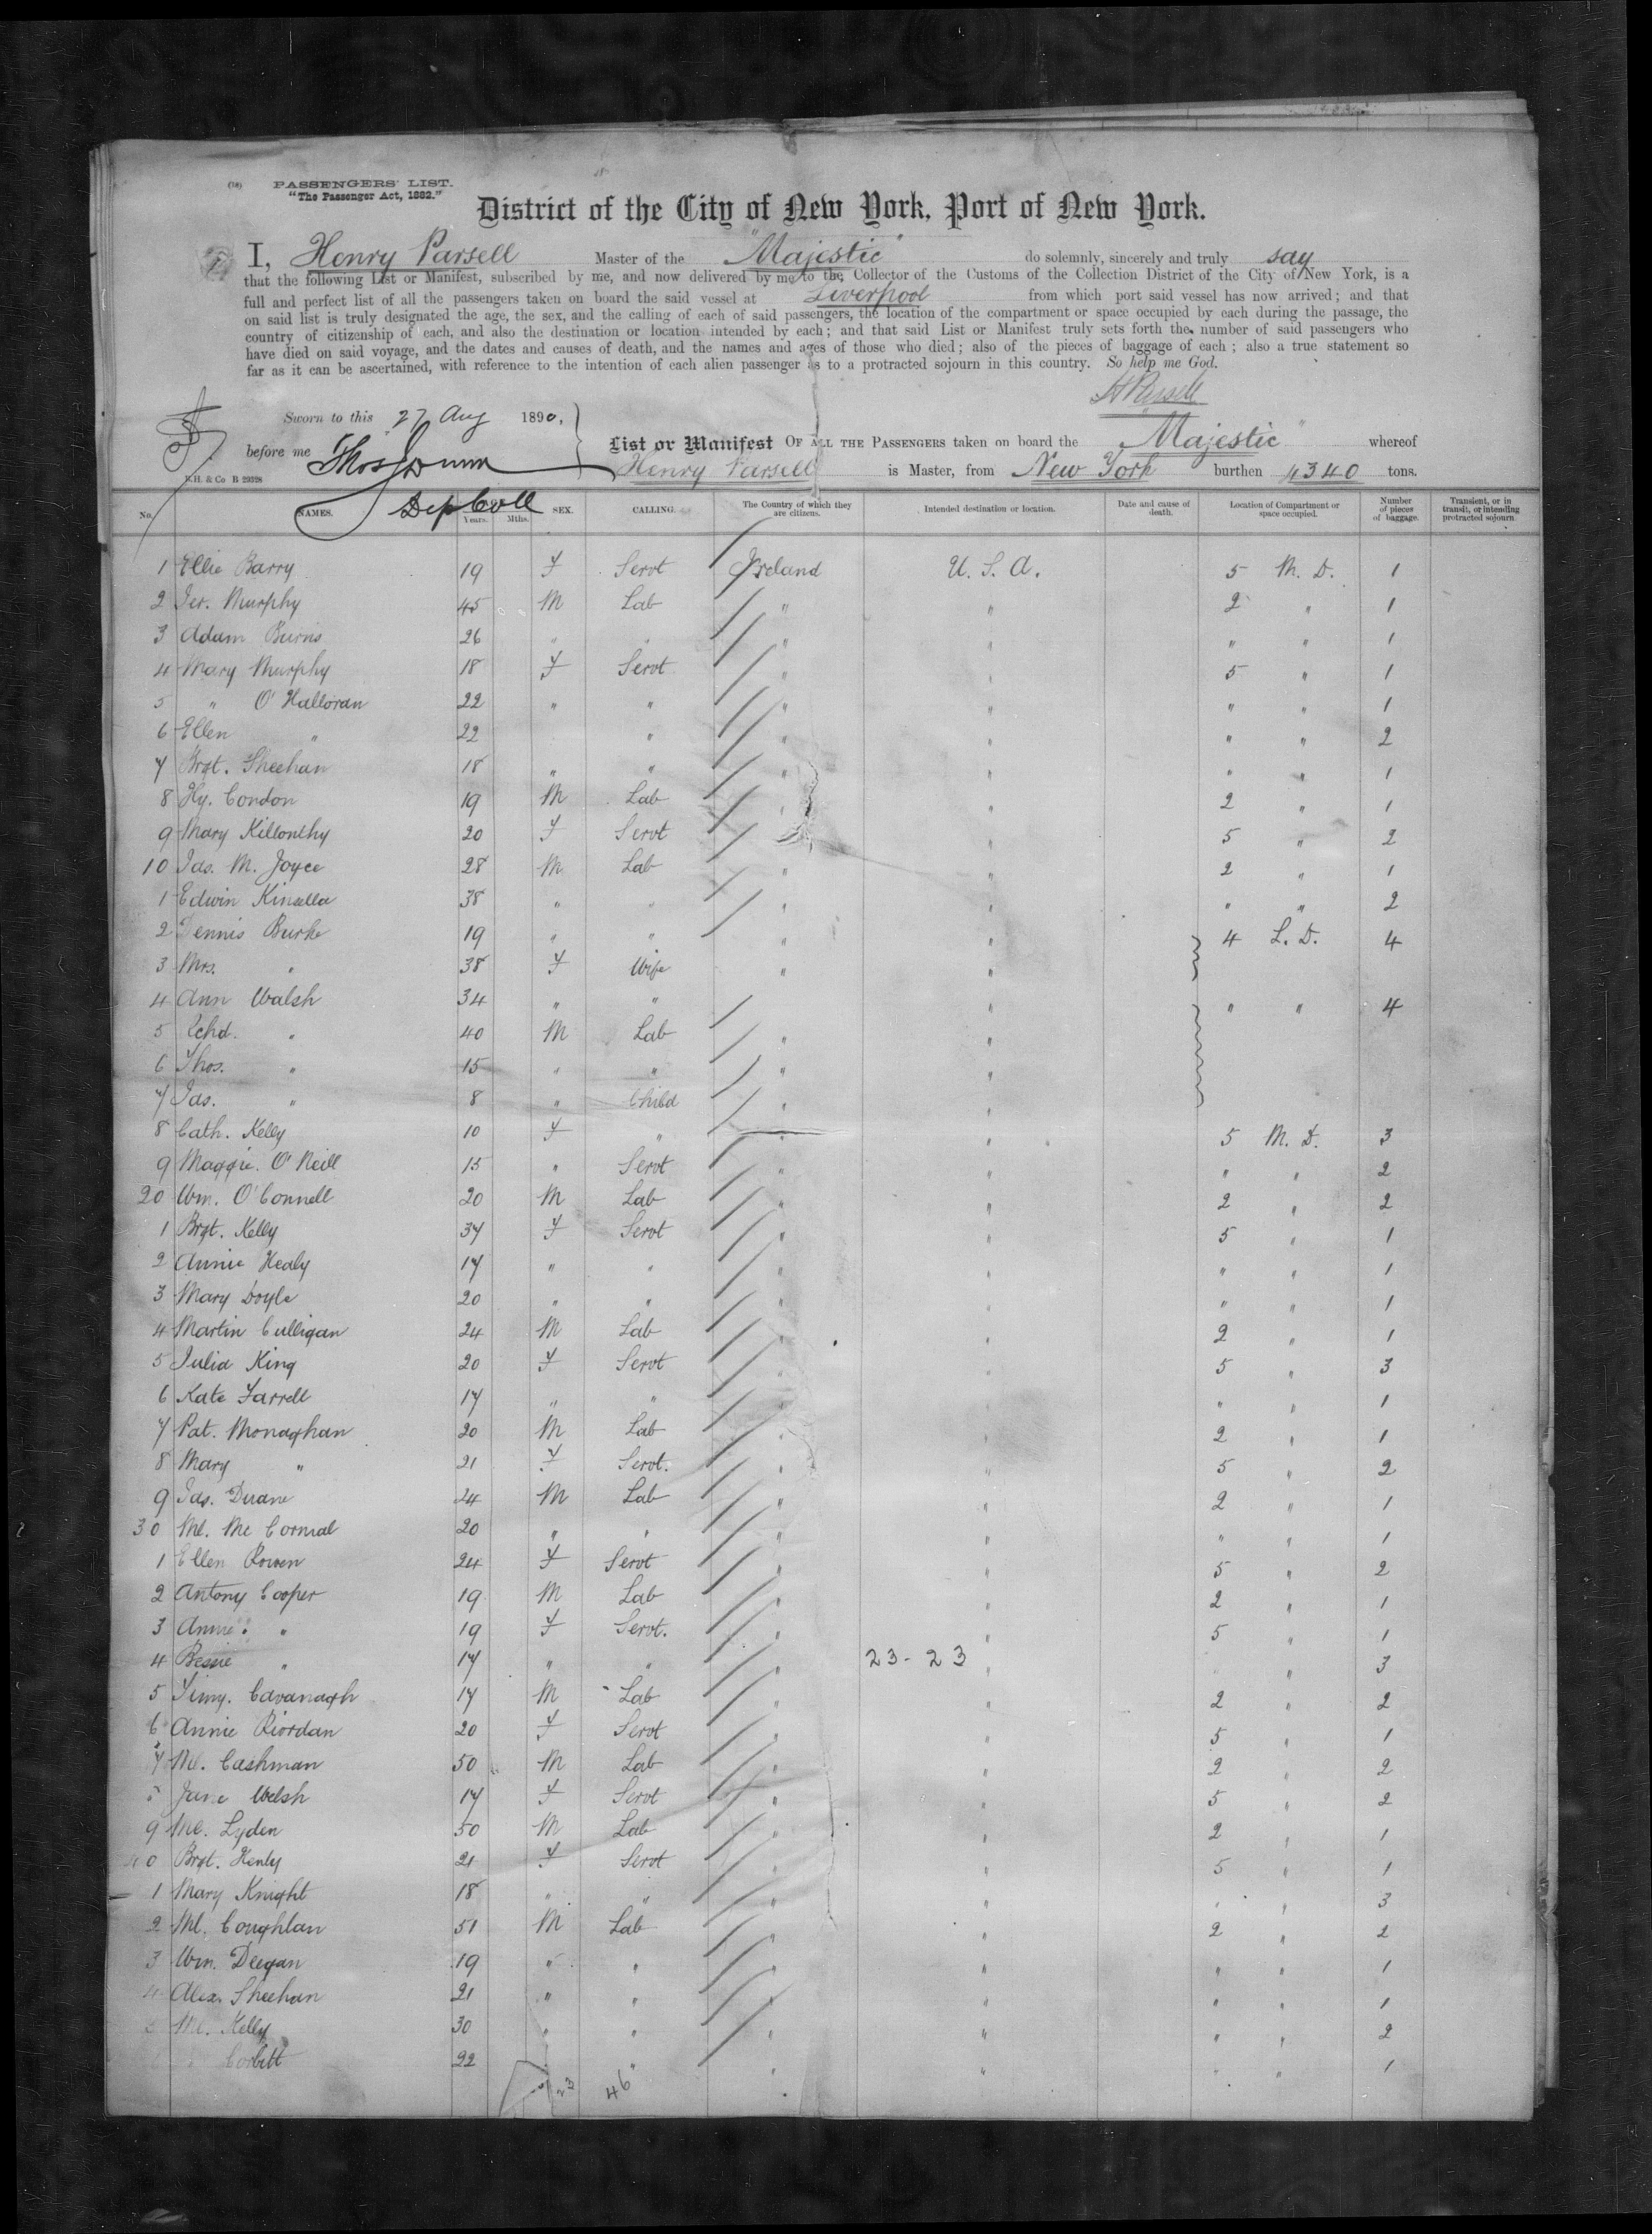 (18) PASSENGERS' LIST.
"The Passenger Act, 1882."
District of the City of New York, Port of New York.
I, Henry Parsell Master of the "Majestic" do solemnly, sincerely and truly say
that the following List or Manifest, subscribed by me, and now delivered by me to the Collector of the Customs of the Collection District of the City of New York, is a
full and perfect list of all the passengers taken on board the said vessel at Liverpool from which port said vessel has now arrived; and that
on said list is truly designated the age, the sex, and the calling of each of said passengers, the location of the compartment or space occupied by each during the passage, the
country of citizenship of each, and also the destination or location intended by each; and that said List or Manifest truly sets forth the number of said passengers who
have died on said voyage, and the dates and causes of death, and the names and ages of those who died; also of the pieces of baggage of each; also a true statement so
far as it can be ascertained, with reference to the intention of each alien passenger as to a protracted sojourn in this country. So help me God.
H Parsell
Sworn to this 27 Aug 1890,
before me Thos
List or Manifest OF ALL THE PASSENGERS taken on board the "Majestic" whereof
Henry Parsell is Master, from New York burthen 4340 tons.
B.H. & Co B 29328
Dep Coll
No. NAMES. Years. Mths. SEX. CALLING. The Country of which they are citizens. Intended destination or location. Date and cause of death. Location of Compartment or space occupied. Number of pieces of baggage. Transient, or in transit, or intending protracted sojourn
1 Ellie Barry 19 F Servt Ireland U. S. A. 5 M. D. 1
2 Jer. Murphy 45 M Lab " " 2 " 1
3 Adam Burns 26 " " " " " " 1
4 Mary Murphy 18 F Servt " " 5 " 1
5 " O'Halloran 22 " " " " " " 1
6 Ellen " 22 " " " " " 2
7 Brgt. Sheehan 18 " " " " " " 1
8 Hy. Condon 19 M Lab " " 2 " 1
9 Mary Killonthy 20 F Servt " 5 " 2
10 Jas. M. Joyce 28 M Lab " " 2 " 1
1 Edwin Kinsella 38 " " " " " " 2
2 Dennis Burke 19 " " " " 4 L. D. 4
3 Mrs. " 38 F Wife " "
4 Ann Walsh 34 " " " " " 4
5 Rchd. " 40 M Lab " "
6 Thos. " 15 " " " "
7 Jas. " 8 " Child " "
8 Cath. Kelly 10 F " " " 5 M. D. 3
9 Maggie. O'Neill 15 " Servt " " " " 2
20 Wm. O'Connell 20 M Lab " " 2 " 2
1 Brgt. Kelly 37 F Servt " " 5 " 1
2 Annie Healy 17 " " " " " " 1
3 Mary Doyle 20 " " " " " " 1
4 Martin Culligan 24 M Lab " " 2 " 1
5 Julia King 20 F Servt " " 5 " 3
6 Kate Farrell 17 " " " " " " 1
7 Pat. Monaghan 20 M Lab " " 2 " 1
8 Mary " 21 F Servt. " " 5 " 2
9 Jas. Duane 24 M Lab " " 2 " 1
30 Ml. Mc Cormal 20 " " " " " " 1
1 Ellen Rowen 24 F Servt " " 5 " 2
2 Antony Cooper 19 M Lab " " 2 " 1
3 Annie " 19 F Servt. " " 5 " 1
4 Bessie " 17 " " " 23-23 " " 3
5 Timy. Cavanagh 17 M Lab " " 2 " 2
6 Annie Riordan 20 F Servt " " 5 " 1
7 Ml. Cashman 50 M Lab " " 2 " 2
Jane Welsh 17 F Servt " " 5 " 2
9 Ml. Lyden 50 M Lab " " 2 " 1
40 Brgt. Henly 21 F Servt " " 5 " 1
1 Mary Knight 18 " " " " " " 3
2 Ml. Coughlan 51 M Lab " " 2 " 2
3 Wm. Deegan 19 " " " " " " 1
4 Alex. Sheehan 21 " " " " " " 1
5 Ml. Kelly 30 " " " " " " 2
Corbitt 22 " " " " 1
23 46